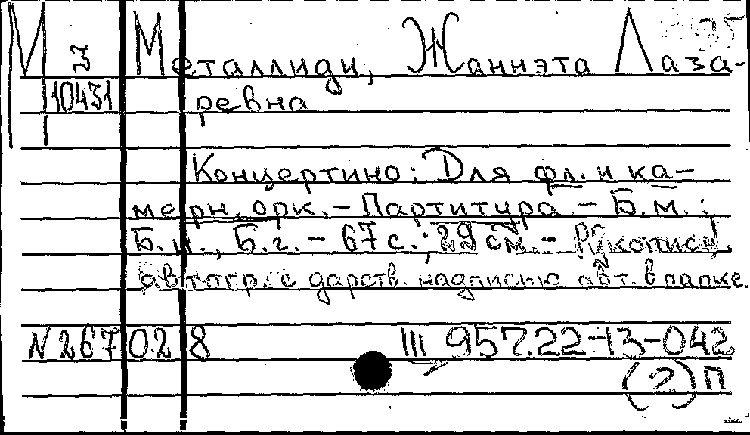 М З Металлиди, Жаннэта Лаза-
10431 ревна
Концертино: Для фл. и ка-
мерн. орк. - Партитура. - Б.м.:
Б.и., Б.г. - 67 с.; 29 см. - Рукопись,
автогр. с дарств. надписью авт. в папке.
N 267 02 8 III 957.22-13-042
(2) П